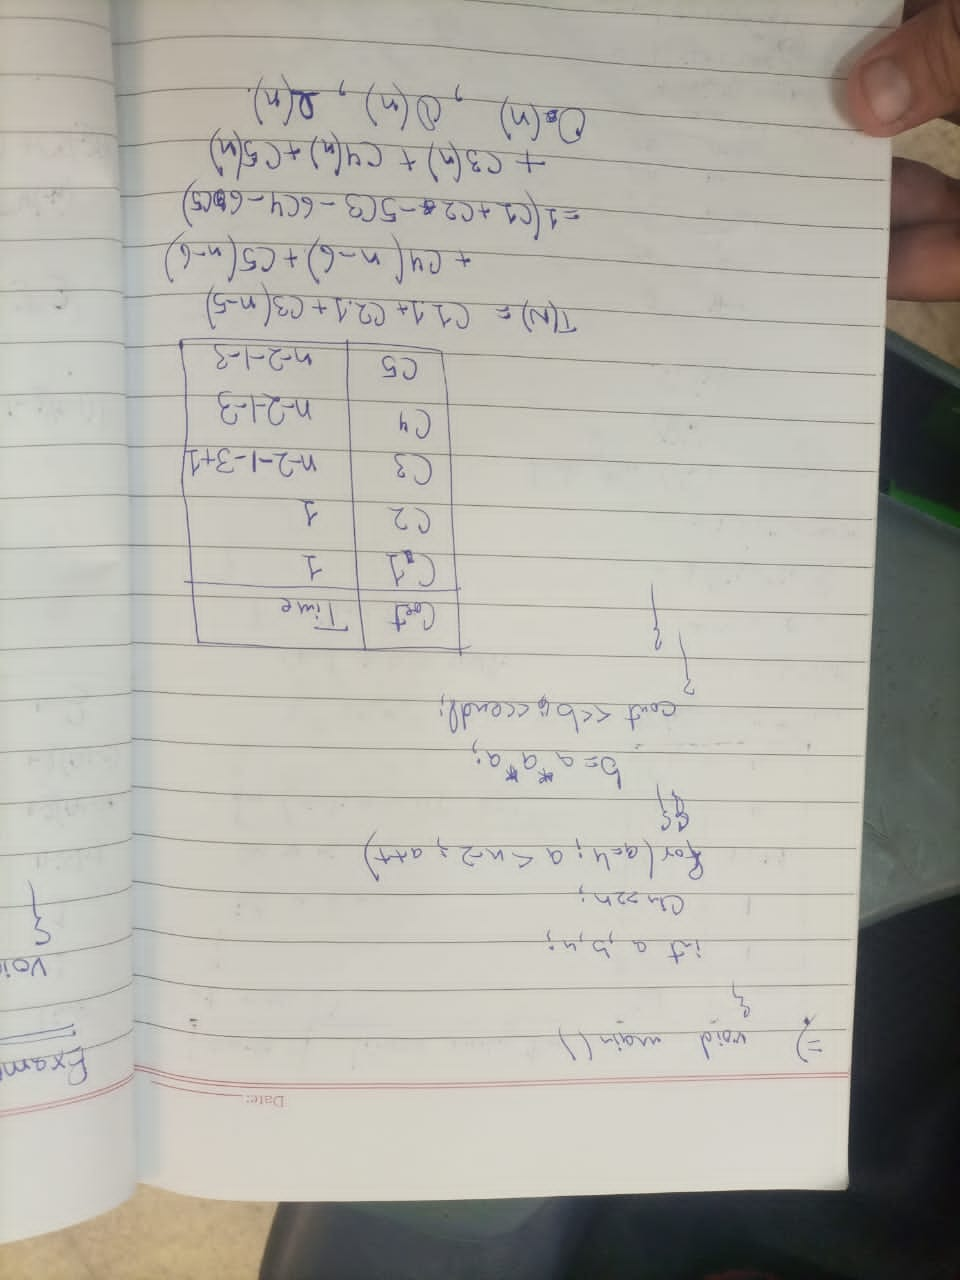 Date:
=> void main()
{
int a, b, n;
Cin>>n;
for(a=4; a<n-2; a++)
{
b=a*a*a;
cout<<b<<endl;
}
}
Cost Time
C1 1
C2 1
C3 n-2-1-3+1
C4 n-2-1-3
C5 n-2-1-3
T(N) = C1.1+C2.1+C3(n-5)
+C4(n-6)+C5(n-6)
=1(C1+C2-5C3-6C4-6C5)
+C3(n)+C4(n)+C5(n)
O(n), Θ(n), Ω(n).
Exam
Voi
{